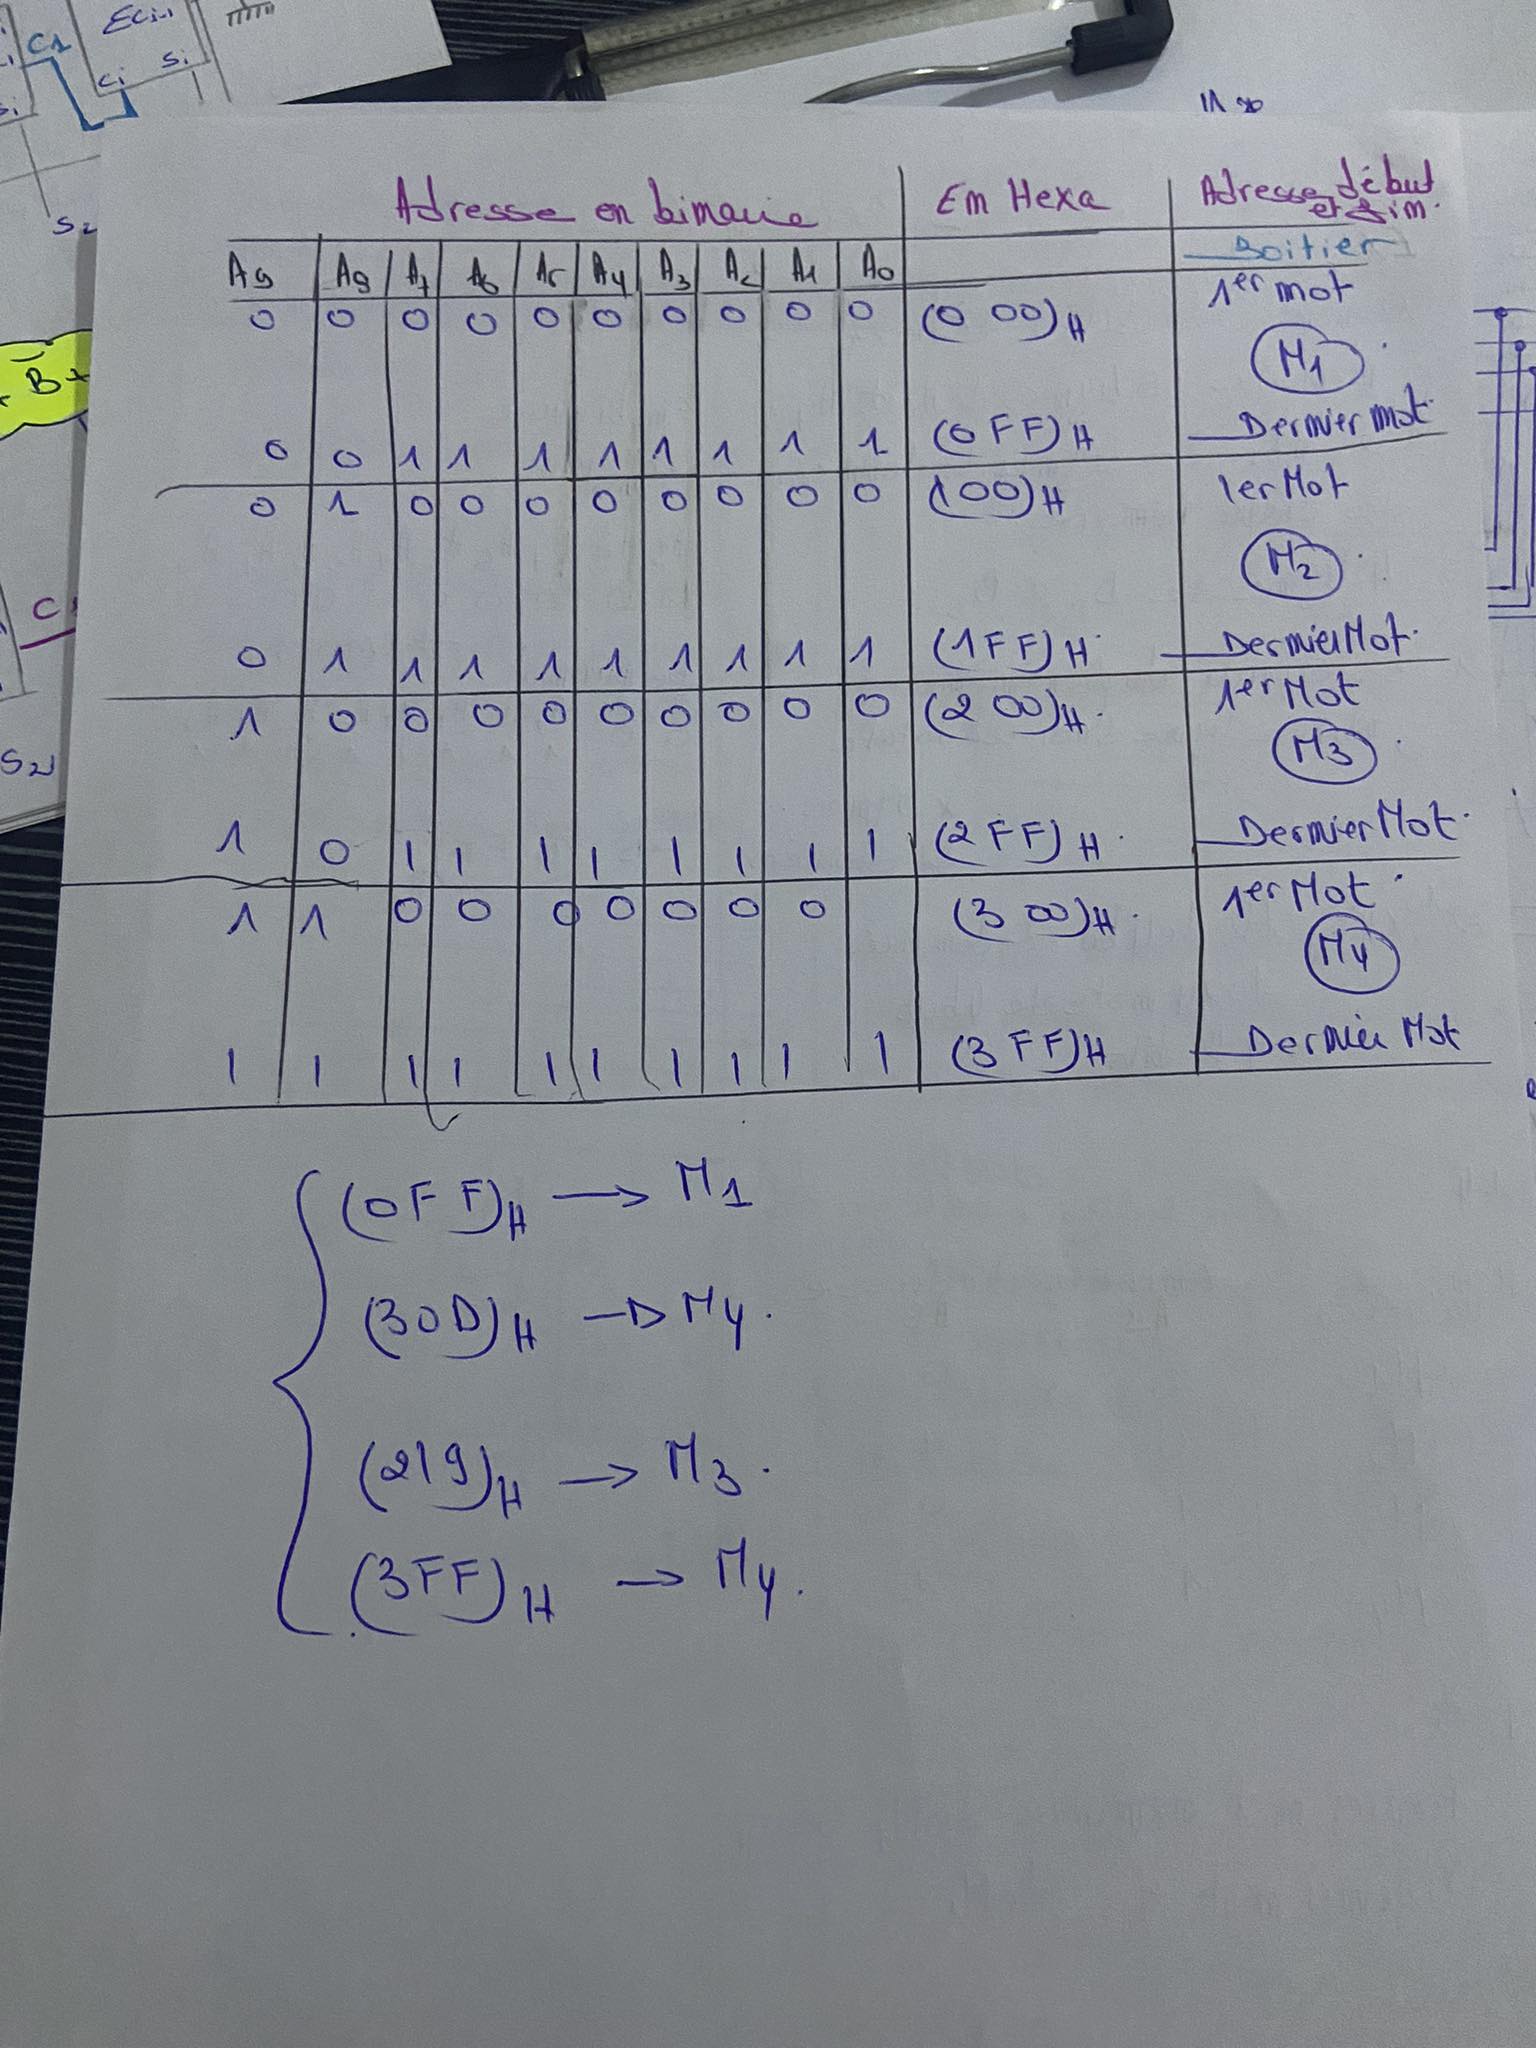 Ecin1
C1
Si
Ci
S2
B+
S2
Adresse en binaire En Hexa Adresse début et fin.
Boitier
A9 A8 A7 A6 A5 A4 A3 A2 A1 A0
0 0 0 0 0 0 0 0 0 0 (0 00)H 1er mot
M1
0 0 1 1 1 1 1 1 1 1 (0FF)H Dernier mot.
0 1 0 0 0 0 0 0 0 0 (100)H 1er Mot
M2
0 1 1 1 1 1 1 1 1 1 (1FF)H Dernier Mot.
1 0 0 0 0 0 0 0 0 0 (2 00)H. 1er Mot
M3
1 0 1 1 1 1 1 1 1 1 (2FF)H. Dernier Mot.
1 1 0 0 0 0 0 0 0 (3 00)H. 1er Mot
M4
1 1 1 1 1 1 1 1 1 1 (3FF)H Dernier Mot
(0FF)H → M1
(30D)H → M4.
(219)H → M3.
(3FF)H → M4.